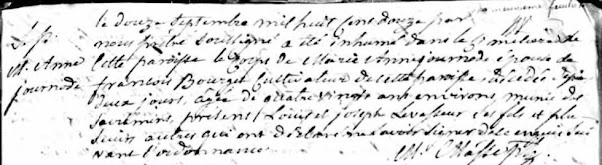 le douze Septembre mil huit cent douze par
nous prêtre Soussigné a été inhumé dans le Cimetiere de
S. p.
M. Anne
journode
Cette paroisse le Corps de Marie Anne journode epouse de
francois Bourget Cultivateur de cette paroisse decedée depuis
deux jours, agée de quatre vingts ans environs munie des
Sacremens, presens Louis et joseph Levasseur ses fils et plu
sieurs autres qui ont declaré ne savoir signer de ce enquis Sui
vant l'ordonnance